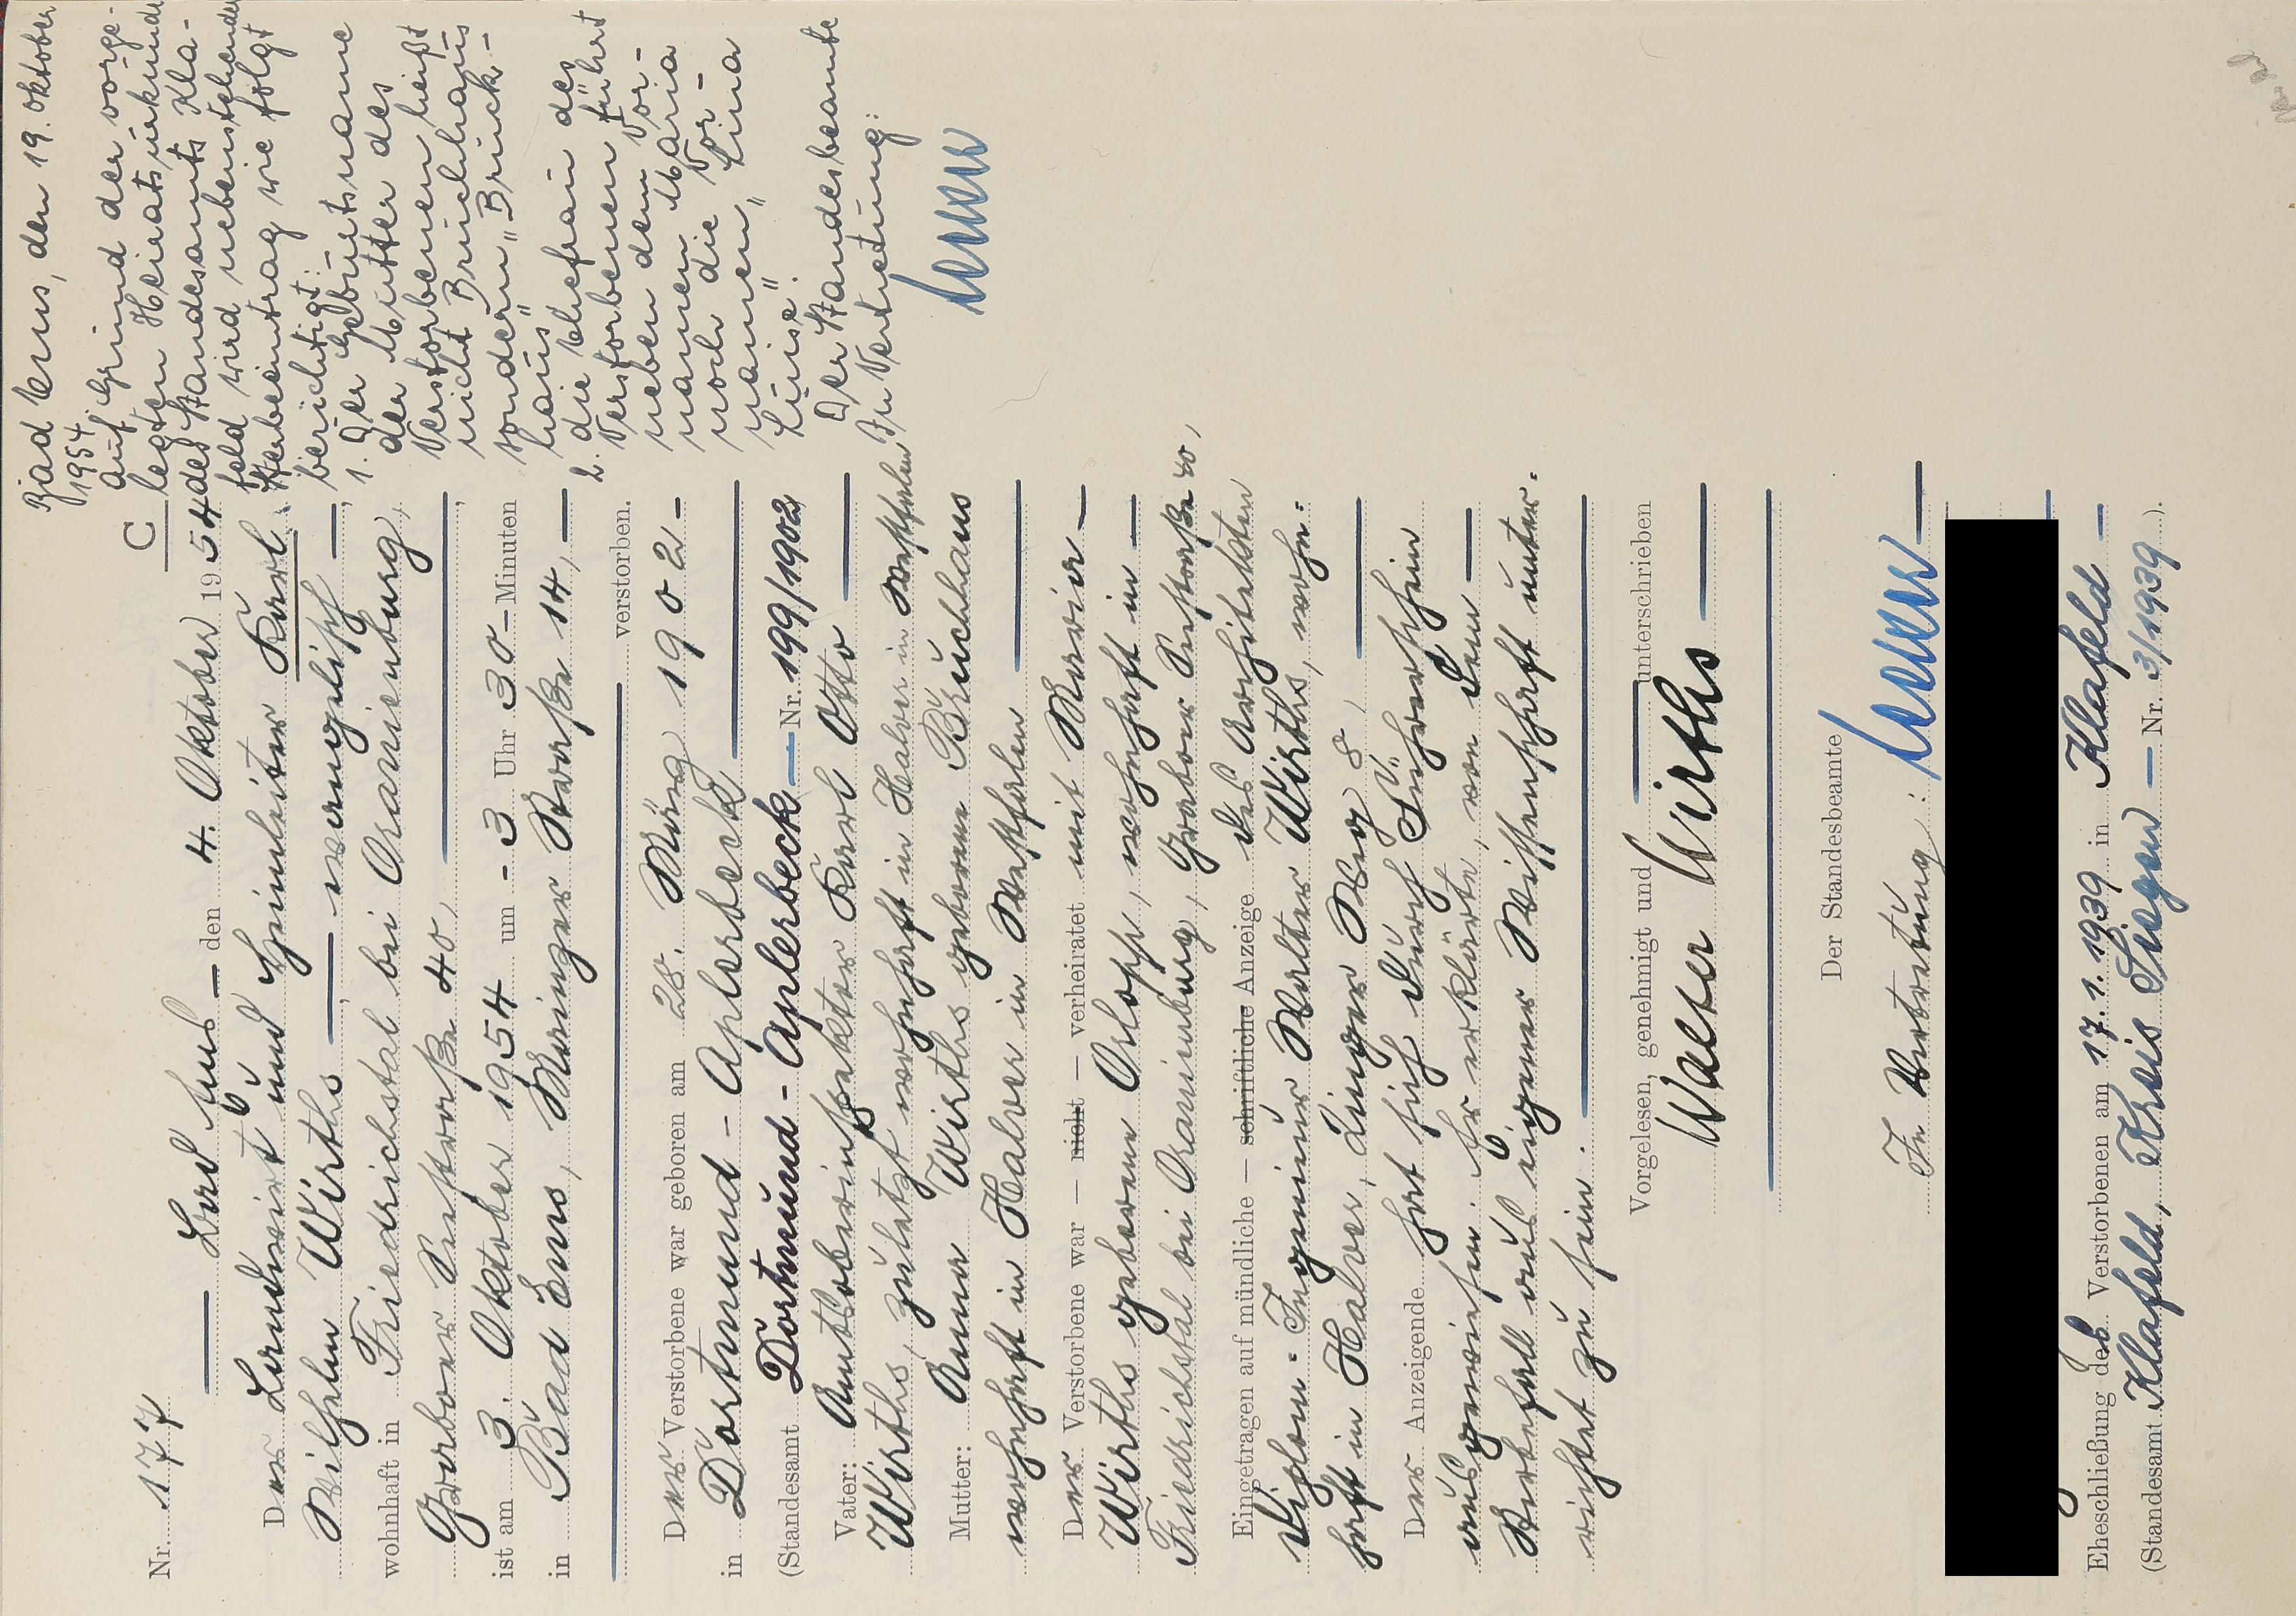 C
Nr. 177
Bad Ems den 4. Oktober 1954
Der Landwirt und Heimleiter Karl
Wilhelm Wirths, evangelisch,
wohnhaft in Friedrichstal bei Oranienburg,
Grabower Seestraße 40,
ist am 3. Oktober 1954 um - 3 Uhr 30 - Minuten
in Bad Ems, Mainzer Straße 14,
verstorben.
Der Verstorbene war geboren am 28. März 1902 -
in Dortmund - Aplerbeck
(Standesamt Dortmund - Aplerbeck Nr. 199/1902
Vater: Amtsobersinspektor Karl Otto
Wirths, zuletzt wohnhaft in Halver in Westfalen
Mutter: Anna Wirths geborene Brüchhaus
wohnhaft in Halver in Westfalen
Der Verstorbene war — nicht — verheiratet mit Maria
Wirths geborene, wohnhaft in
Friedrichstal bei Oranienburg, Grabower Seestraße 40,
Eingetragen auf mündliche — schriftliche Anzeige des Architekten
Diplom-Ingenieur Walter Wirths, wohn-
haft in Halver, Linger Weg 8,
Der Anzeigende hat sich durch Führerschein
ausgewiesen. Er erklärte, von dem
Sterbefall aus eigener Wissenschaft unter-
richtet zu sein.
Vorgelesen, genehmigt und unterschrieben
Walter Wirths
Der Standesbeamte
In Vertretung:
Eheschließung des Verstorbenen am 17.1.1939 in Klafeld
(Standesamt Klafeld, Kreis Siegen Nr. 3/1939).
Bad Ems, den 19. Oktober
1954.
Auf Grund der vorge-
legten Heiratsurkunde
des Standesamts Kla-
feld wird nebenstehender
Sterbeeintrag wie folgt
berichtigt:
1. Der Geburtsname
der Mutter des
Verstorbenen heißt
nicht Brüchhaus
sondern "Brück-
haus"
2. die Ehefrau des
Verstorbenen führt
neben dem Vor-
namen Maria
noch die Vor-
namen "Lina
Luise".
Der Standesbeamte
In Vertretung: